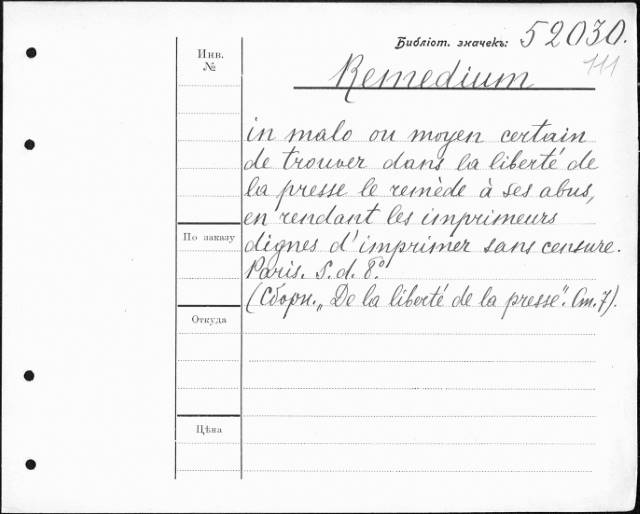 Библіот. значекъ: 52030.
111
Инв.
№
Remedium
in malo ou moyen certain
de trouver dans la liberté de
la presse le remède à ses abus,
en rendant les imprimeurs
По заказу
dignes d'imprimer sans censure.
Paris. S. d. 8°.
(Сборн. „De la liberté de la presse". Ст. 7).
Откуда
Цѣна